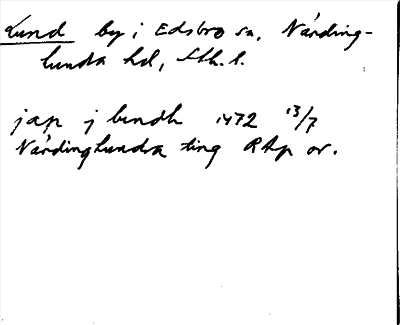 Lund by i Edsbro sn, Närding-
lunda hd, Sth. l.
jap j lundh 1472 13/7
Närdinghundra ting RAp or.